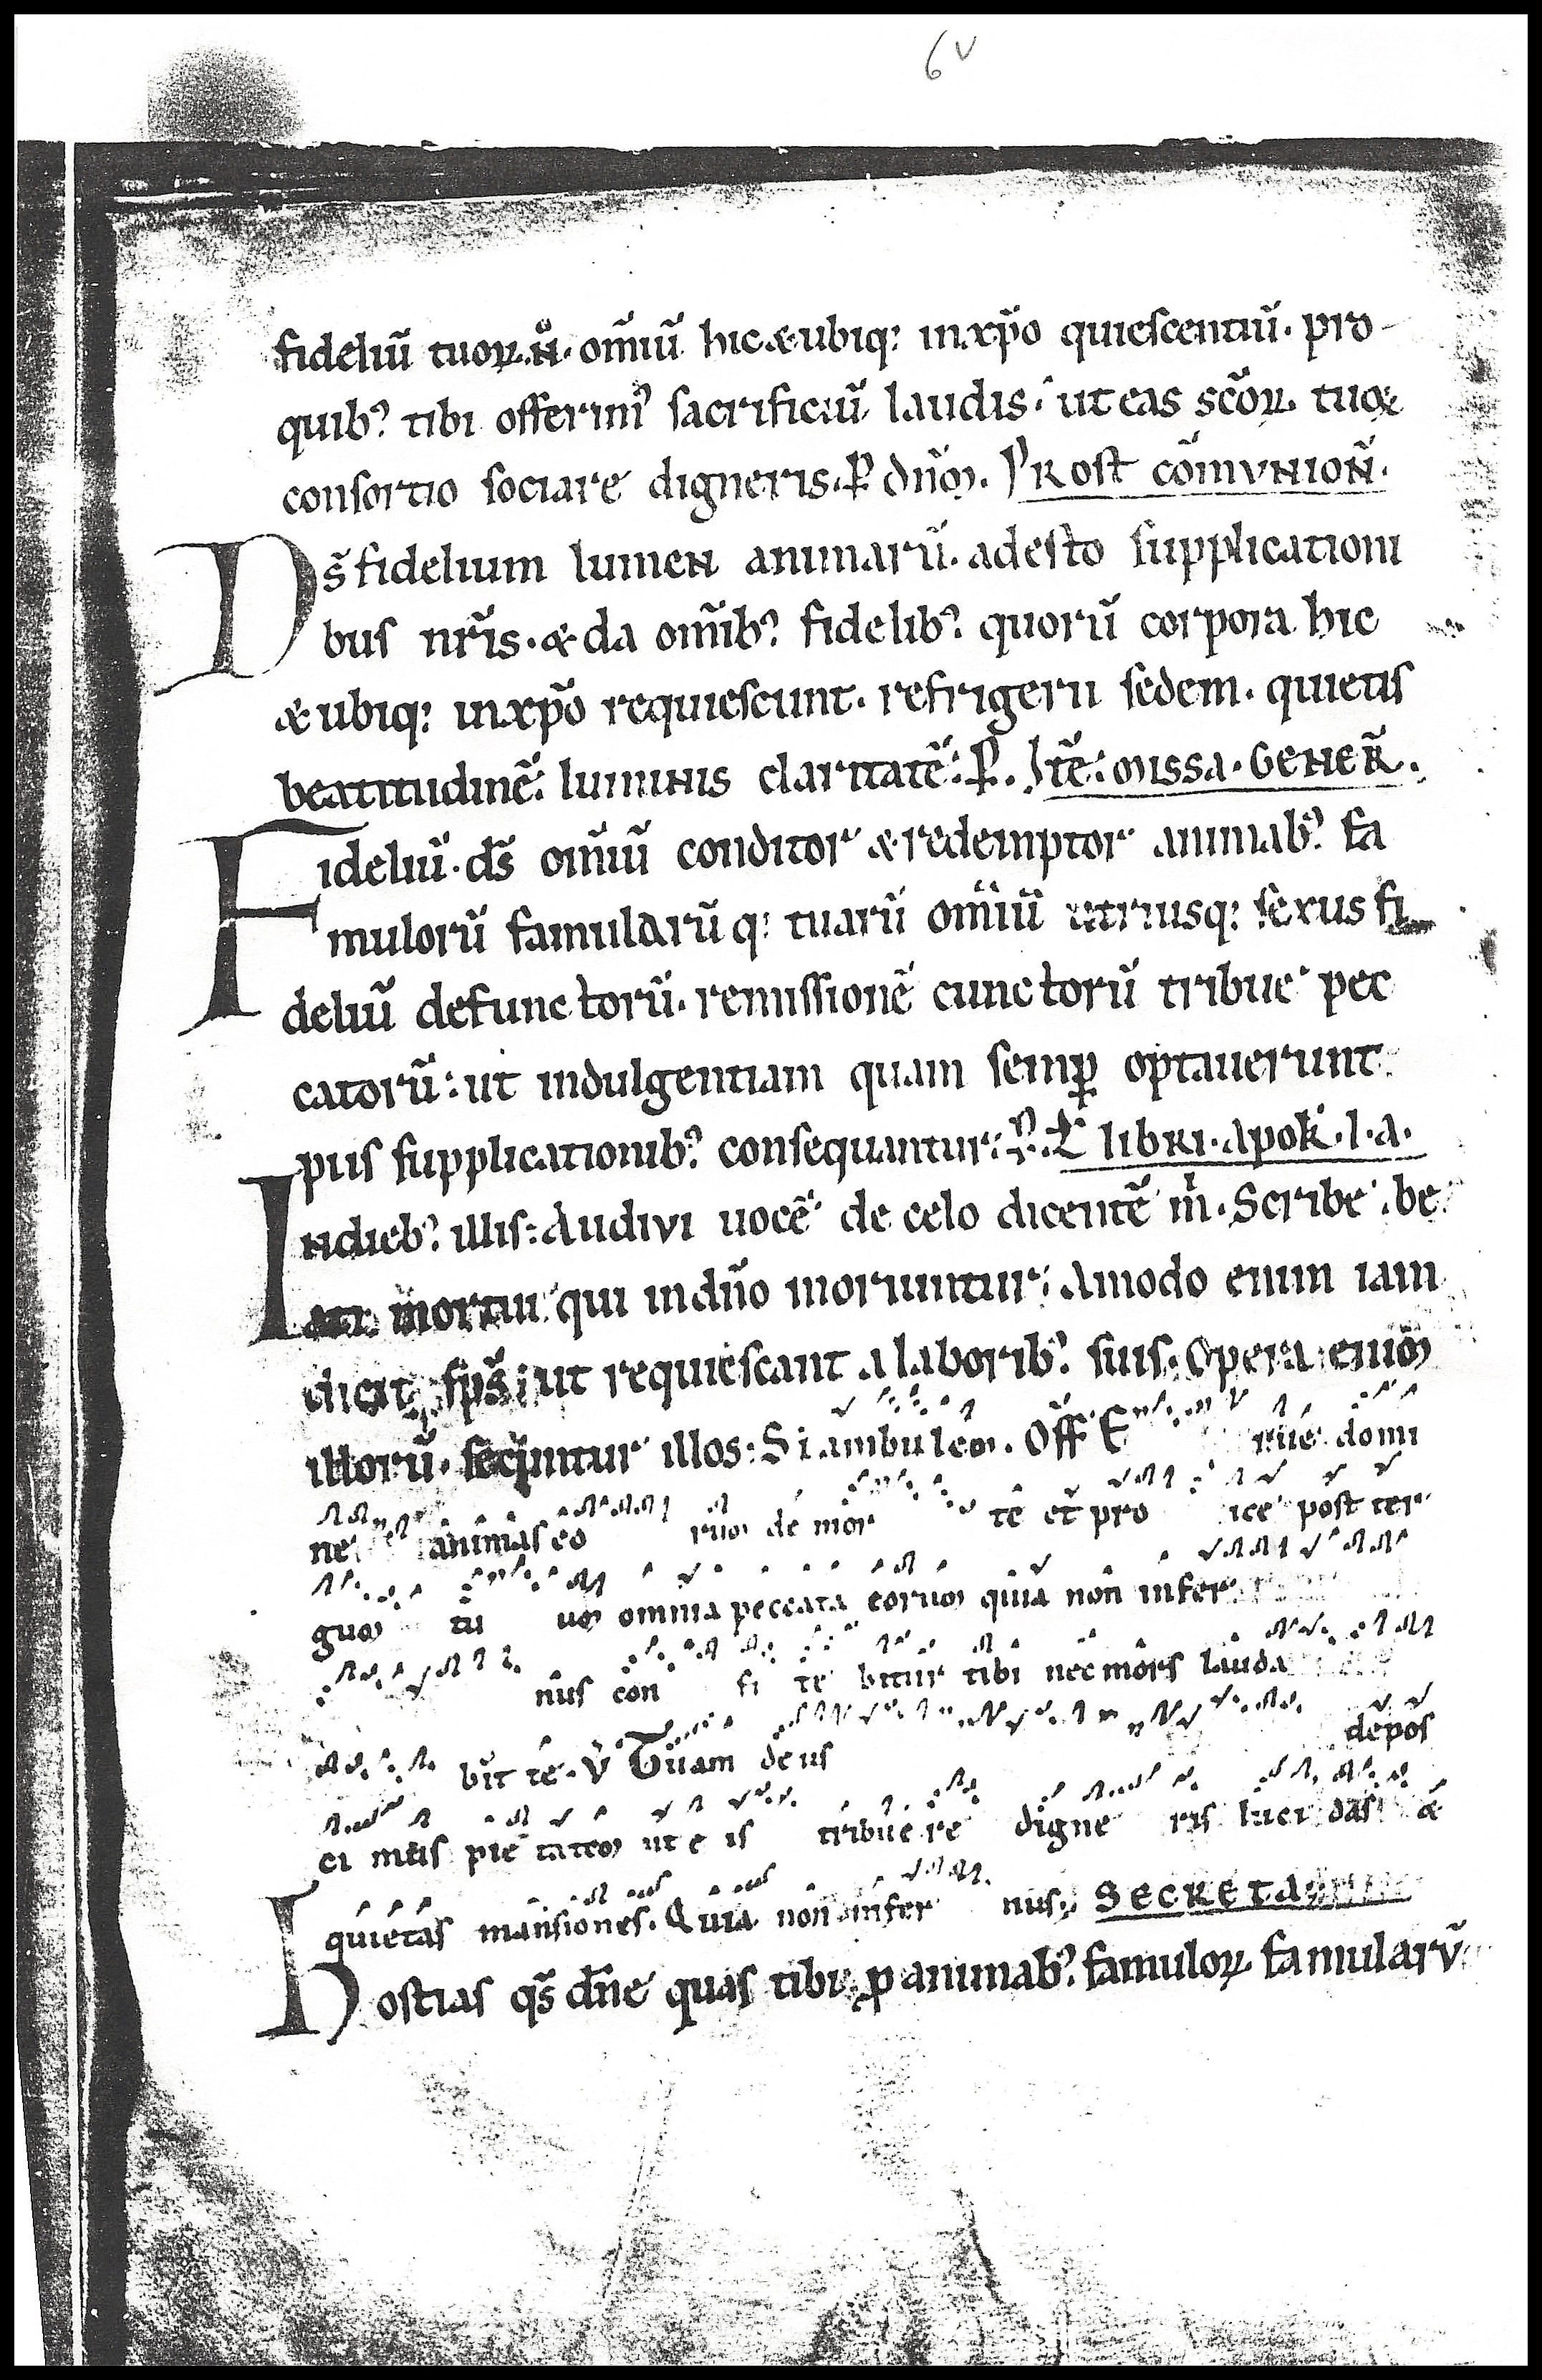 6v
fideliū tuoꝝ. N̊. om̄iū hic & ubiq; in xp̄o quiescentiū. pro
quibꝰ tibi offerimꝰ sacrificiū laudis. ut eas sc̄oꝝ tuoꝝ
consortio sociare digneris. P dn̄m. Post cōmunion̄.
Ds̄ fidelium lumen animarū. adesto supplicationi
bus nr̄is. & da om̄ibꝰ fidelibꝰ quorū corpora hic
& ubiq; in xp̄o requiescunt. refrigerii sedem. quietis
beatitudinē. luminis claritatē. P. Itē missa. gener̄.
Fideliū. ds̄ om̄iū conditor & redemptor animabꝰ fa
mulorū famularūq; tuarū om̄iū utriusq; sexus fi
deliū defunctorū. remissionē cunctorū tribue pec
catorū: ut indulgentiam quam semꝑ optauerunt
piis supplicationibꝰ consequantur. P. L libri. apok. l. a.
In diebꝰ illis: Audivi uocē de celo dicentē m̄. Scribe. be
ati mortui qui in dn̄o moriuntur. Amodo enim iam
dicit sps̄. ut requiescant a laboribꝰ suis. Opera enim
illorū. sequntur illos: Si ambulem. Off̄ E rue domi
ne animas eo rum de mor te et pro ice post ter
gum tu um omnia peccata eorum quia non infer
nus con fi te bitur tibi nec mors lauda
bit te. V̄ Tuam deus depos
ci mus pie tatem ut e is tribue re digne ris luci das &
quietas mansiones. Quia non infer nus. Secreta
Hostias qs̄ dn̄e quas tibi ꝓ animabꝰ famuloꝝ famularū